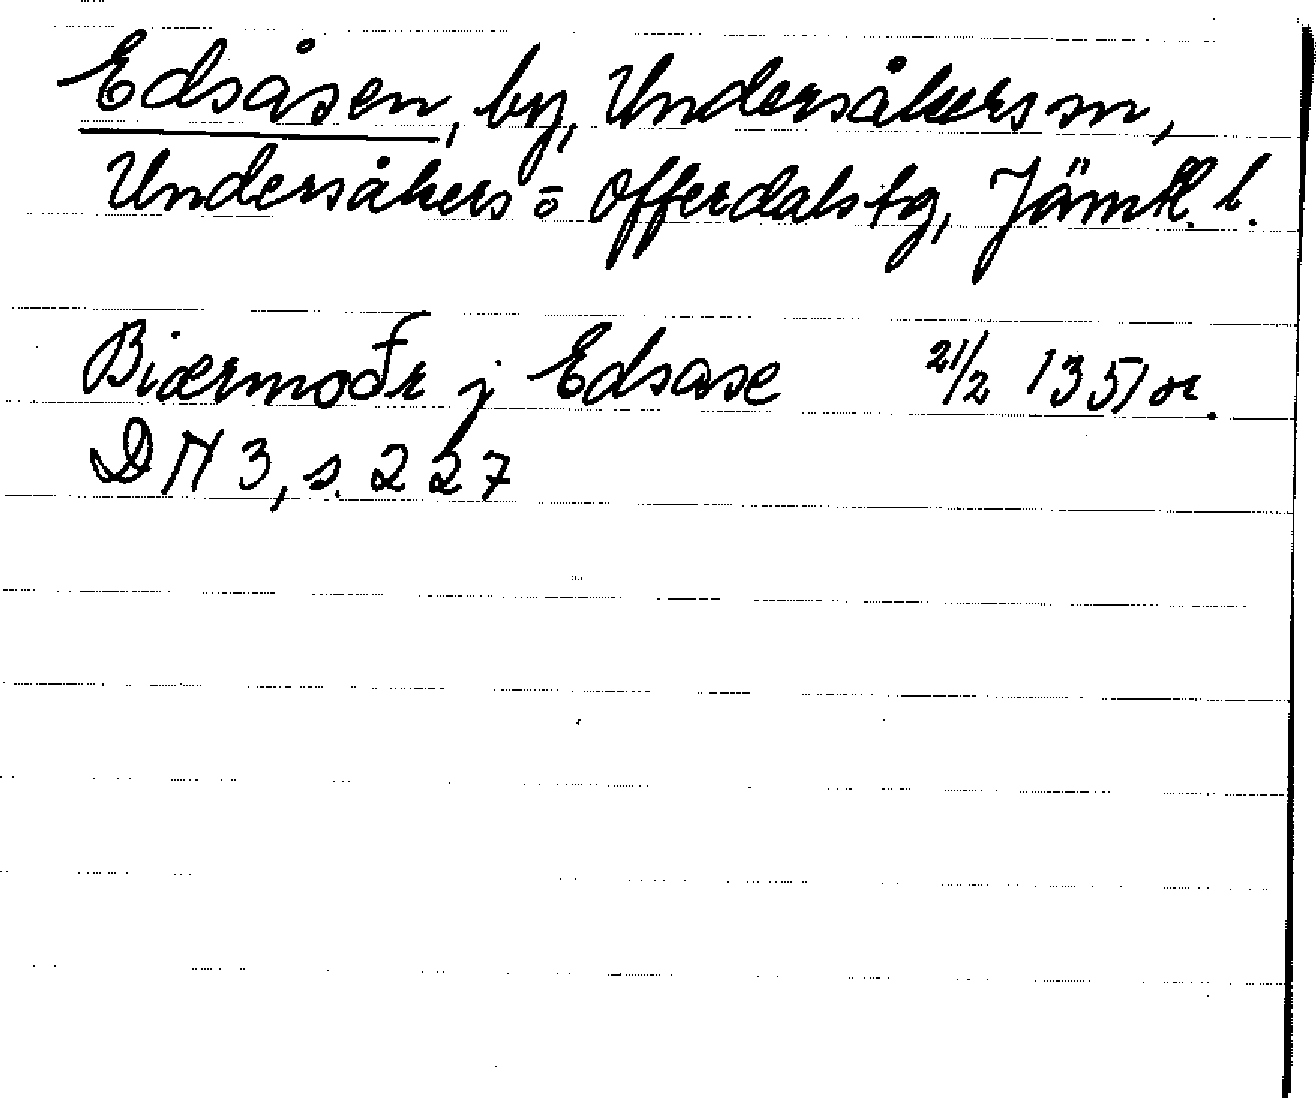 Edsåsen, by, Undersåkers sn,
Undersåkers = Offerdals tg, Jämtl. l.
Biærmoðr j Edsase 21/2 1351 or.
DN 3, s. 227